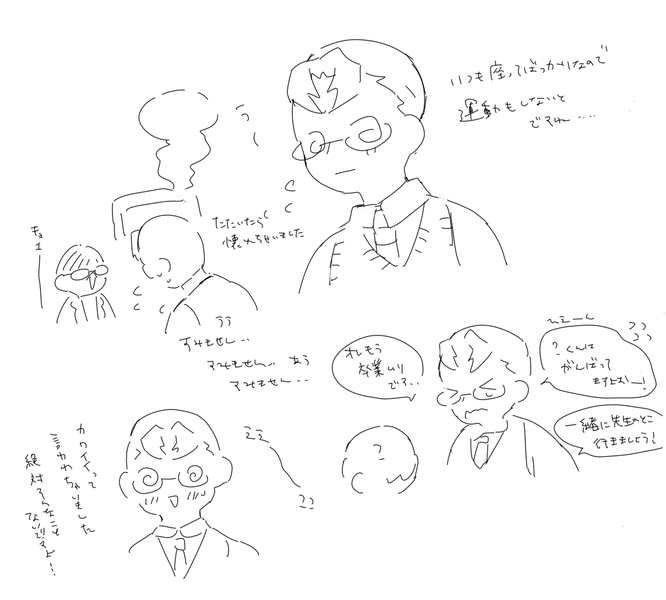 いつも座ってばっかなので
運動もしないと
ですね....
たたいたら
壊れちゃいました
すみません..
すみません.. あう
すみません..
オレもう
卒業ムリ
です..
?くんは
がんばって
ますよおー!
一緒に先生のとこ
行きましょう!
カワイイって
言われちゃいました
絶対そんなこと
ないですよ!